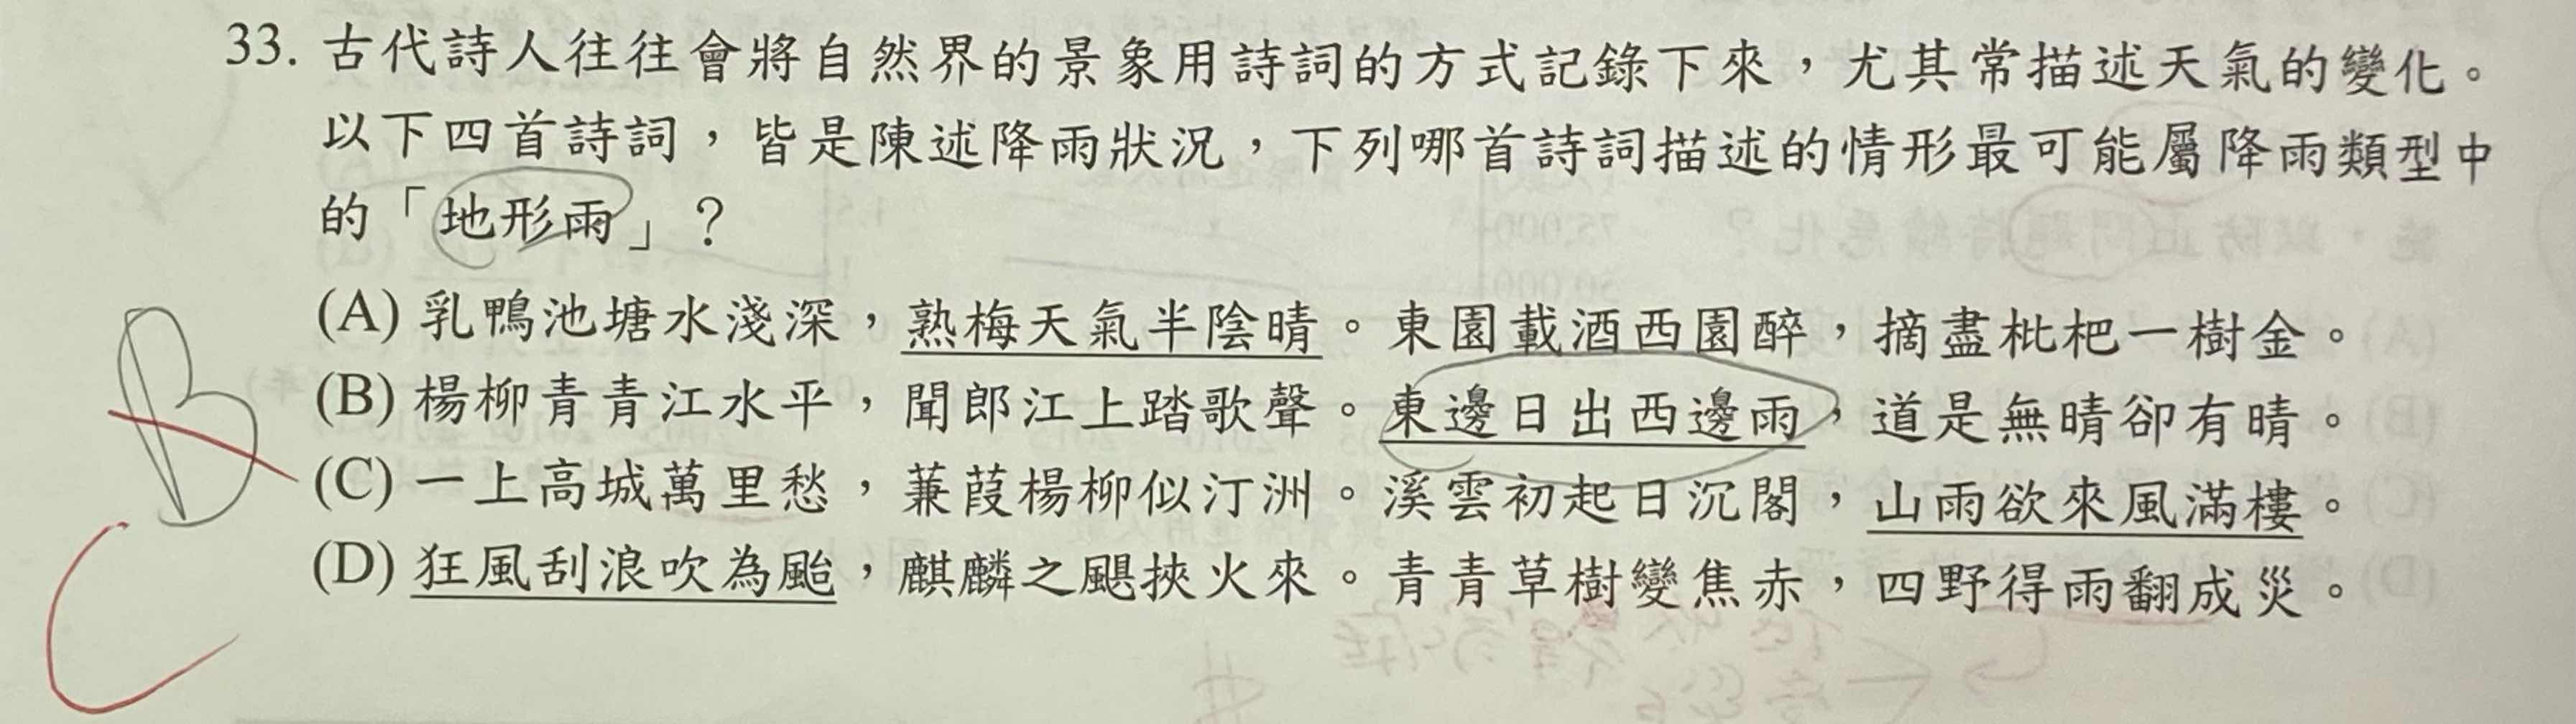 33. 古代詩人往往會將自然界的景象用詩詞的方式記錄下來，尤其常描述天氣的變化。
以下四首詩詞，皆是陳述降雨狀況，下列哪首詩詞描述的情形最可能屬降雨類型中
的「地形雨」？
(A) 乳鴨池塘水淺深，熟梅天氣半陰晴。東園載酒西園醉，摘盡枇杷一樹金。
(B) 楊柳青青江水平，聞郎江上踏歌聲。東邊日出西邊雨，道是無晴卻有晴。
(C) 一上高城萬里愁，蒹葭楊柳似汀洲。溪雲初起日沉閣，山雨欲來風滿樓。
(D) 狂風刮浪吹為颱，麒麟之颶挾火來。青青草樹變焦赤，四野得雨翻成災。
B
C